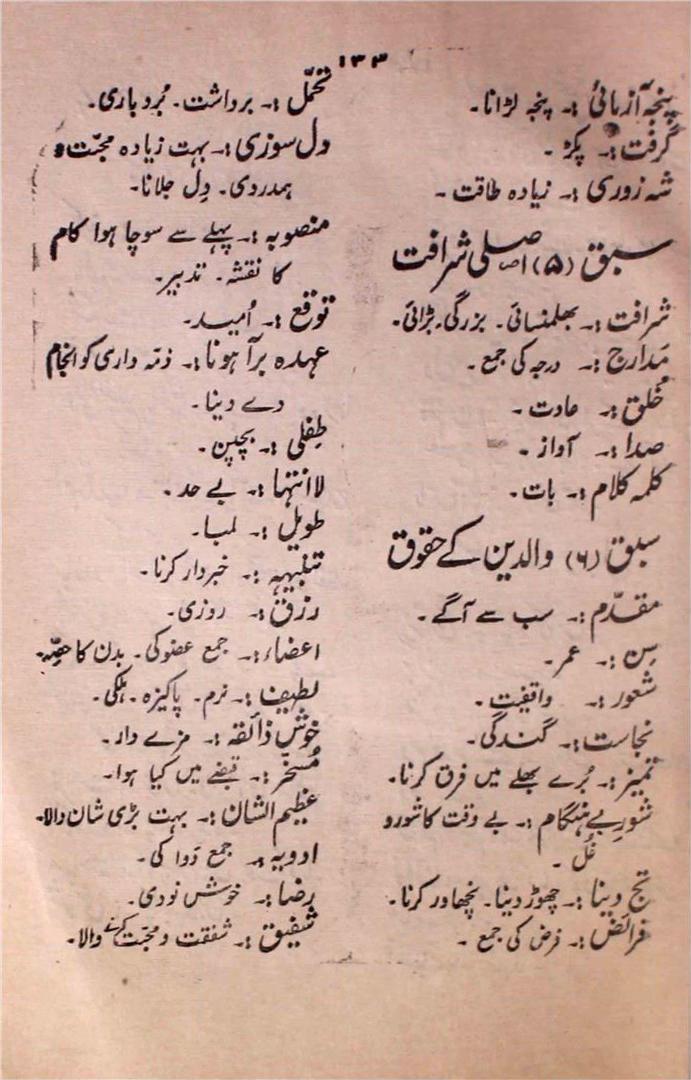 ۱۳۳
پنجہ آزمائی :۔ پنجہ لڑانا۔
گرفت :۔ پکڑ۔
شہ زوری :۔ زیادہ طاقت۔
سبق (۵) اصلی شرافت
شرافت :۔ بھلمنسائی۔ بزرگی، بڑائی۔
مَدارج :۔ درجہ کی جمع۔
خُلق :۔ عادت۔
صدا :۔ آواز۔
کلمہ کلام :۔ بات۔
سبق (۶) والدین کے حقوق
مقدّم :۔ سب سے آگے۔
سِن :۔ عمر۔
شعور :۔ واقفیت۔
نجاست :۔ گندگی۔
تمیز :۔ بُرے بھلے میں فرق کرنا۔
شورِ بے ہنگام :۔ بے وقت کا شور و
غُل۔
تج دینا :۔ چھوڑ دینا۔ نچھاور کرنا۔
فرائض :۔ فرض کی جمع۔
تحمّل :۔ برداشت۔ بُردباری۔
دل سوزی :۔ بہت زیادہ محبّت و
ہمدردی۔ دِل جلانا۔
منصوبہ :۔ پہلے سے سوچا ہوا کام
کا نقشہ۔ تدبیر۔
توقع :۔ اُمید۔
عہدہ برآ ہونا :۔ ذمّہ داری کو انجام
دے دینا۔
طِفلی :۔ بچپن۔
لاانتہا :۔ بے حد۔
طویل :۔ لمبا۔
تنبیہہ :۔ خبردار کرنا۔
رزق :۔ روزی۔
اعضاء :۔ جمع عضو کی۔ بدن کا حصّہ۔
لطیف :۔ نرم۔ پاکیزہ۔ ہلکی۔
خوش ذائقہ :۔ مزے دار۔
مُسخّر :۔ قبضے میں کیا ہوا۔
عظیم الشان :۔ بہت بڑی شان والا۔
ادویہ :۔ جمع دَوا کی۔
رضا :۔ خوش نودی۔
شفیق :۔ شفقت و محبّت کرنے والا۔